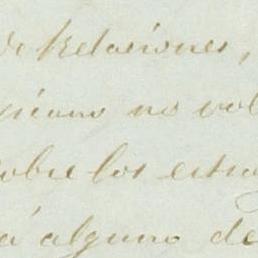 de Relaciones,
no vol
sobre los estra
a alguno de